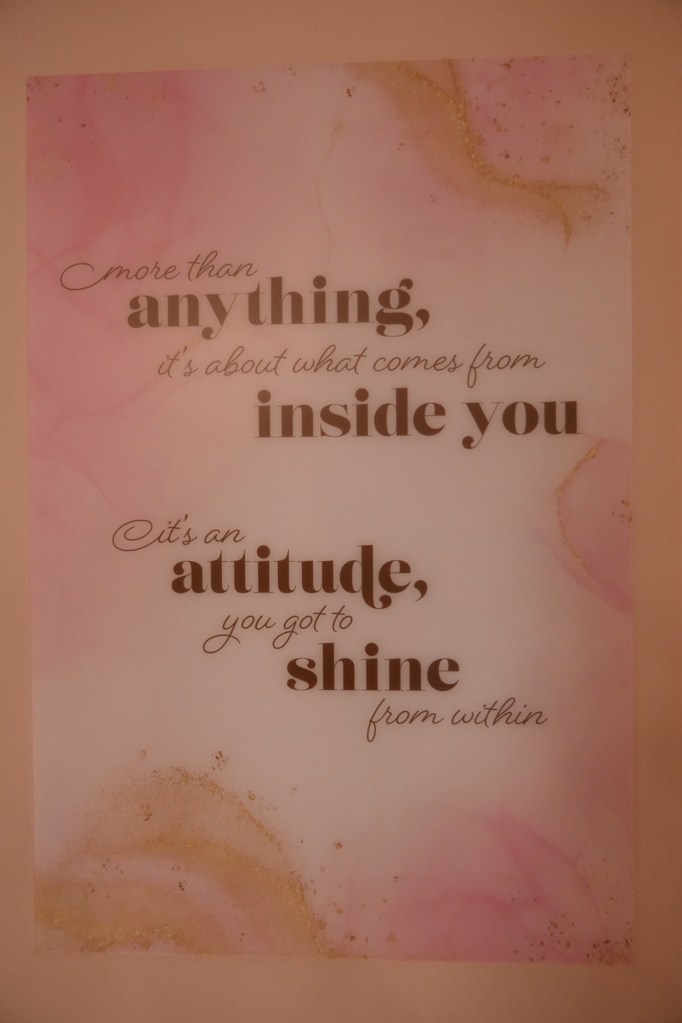 more than
anything,
it's about what comes from
inside you
it's an
attitude,
you got to
shine
from within